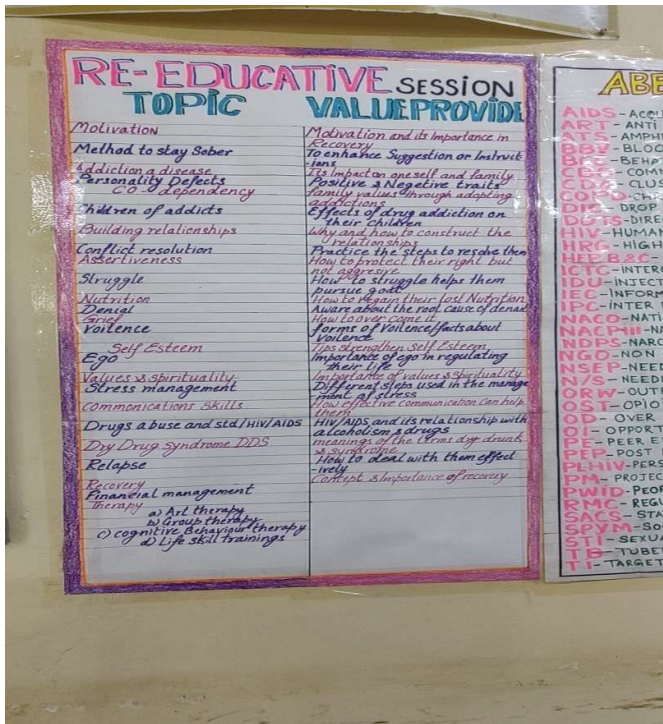 RE-EDUCATIVE SESSION
TOPIC VALUE PROVIDE
Motivation
Method to stay Sober
Addiction a disease
Personality Defects
CO-dependency
Children of addicts
Building relationships
Conflict resolution
Assertiveness
Struggle
Nutrition
Denial
Grief
Voilence
Self Esteem
Ego
Values & spirituality
Stress management
Commonications skills
Drugs abuse and std/HIV/AIDS
Dry Drug Syndrome DDS
Relapse
Recovery
Financial management
Therapy
a) Art therapy
b) Group therapy
c) Cognitive Behaviour therapy
d) Life skill trainings
Motivation and its Importance in
Recovery
To enhance Suggestion or Instruct
ions
Its Impact on oneself and family
Positive & Negetive traits
family values through adapting
addictions
Effects of drug addiction on
their children
Why and how to construct the
relationships
Practice the steps to resolve them
How to protect their right but
not aggresive
How to struggle helps them
pursue goal
How to regain their lost Nutrition
Aware about the root cause of denial
How to over come it
forms of Voilence/facts about
Voilence
Tips strengthen Self Esteem
Importance of ego in regulating
their life
Importance of values & spirituality
Different steps used in the manage
ment of stress
How effective communication can help
them
HIV/AIDS and its relationship with
alcoholism & drugs
meanings of the terms dry drunk
& syndrome
How to deal with them effect
ively
Concept & Importance of recovery
ABB
AIDS - ACQU
ART - ANTI
ATS - AMPH
BBV - BLOO
BEHA
COMM
CLUS
DROP
DIRE
HIV - HUMAN
HRG - HIGH
ICTC - INTER
IDU - INJECT
IEC - INFORM
IPC - INTER
NACO - NATI
NACP III - NA
NDPS - NARC
NGO - NON
NSEP - NEED
N/S - NEED
ORW - OUT
OST - OPIO
OD - OVER
OI - OPPORT
PE - PEER E
PEP - POST
PLHIV - PERS
PM - PROJEC
PWID - PEOP
RMC - REGU
SACS - STA
SPYM - SO
STI - SEXUA
TB - TUBE
TI - TARGET